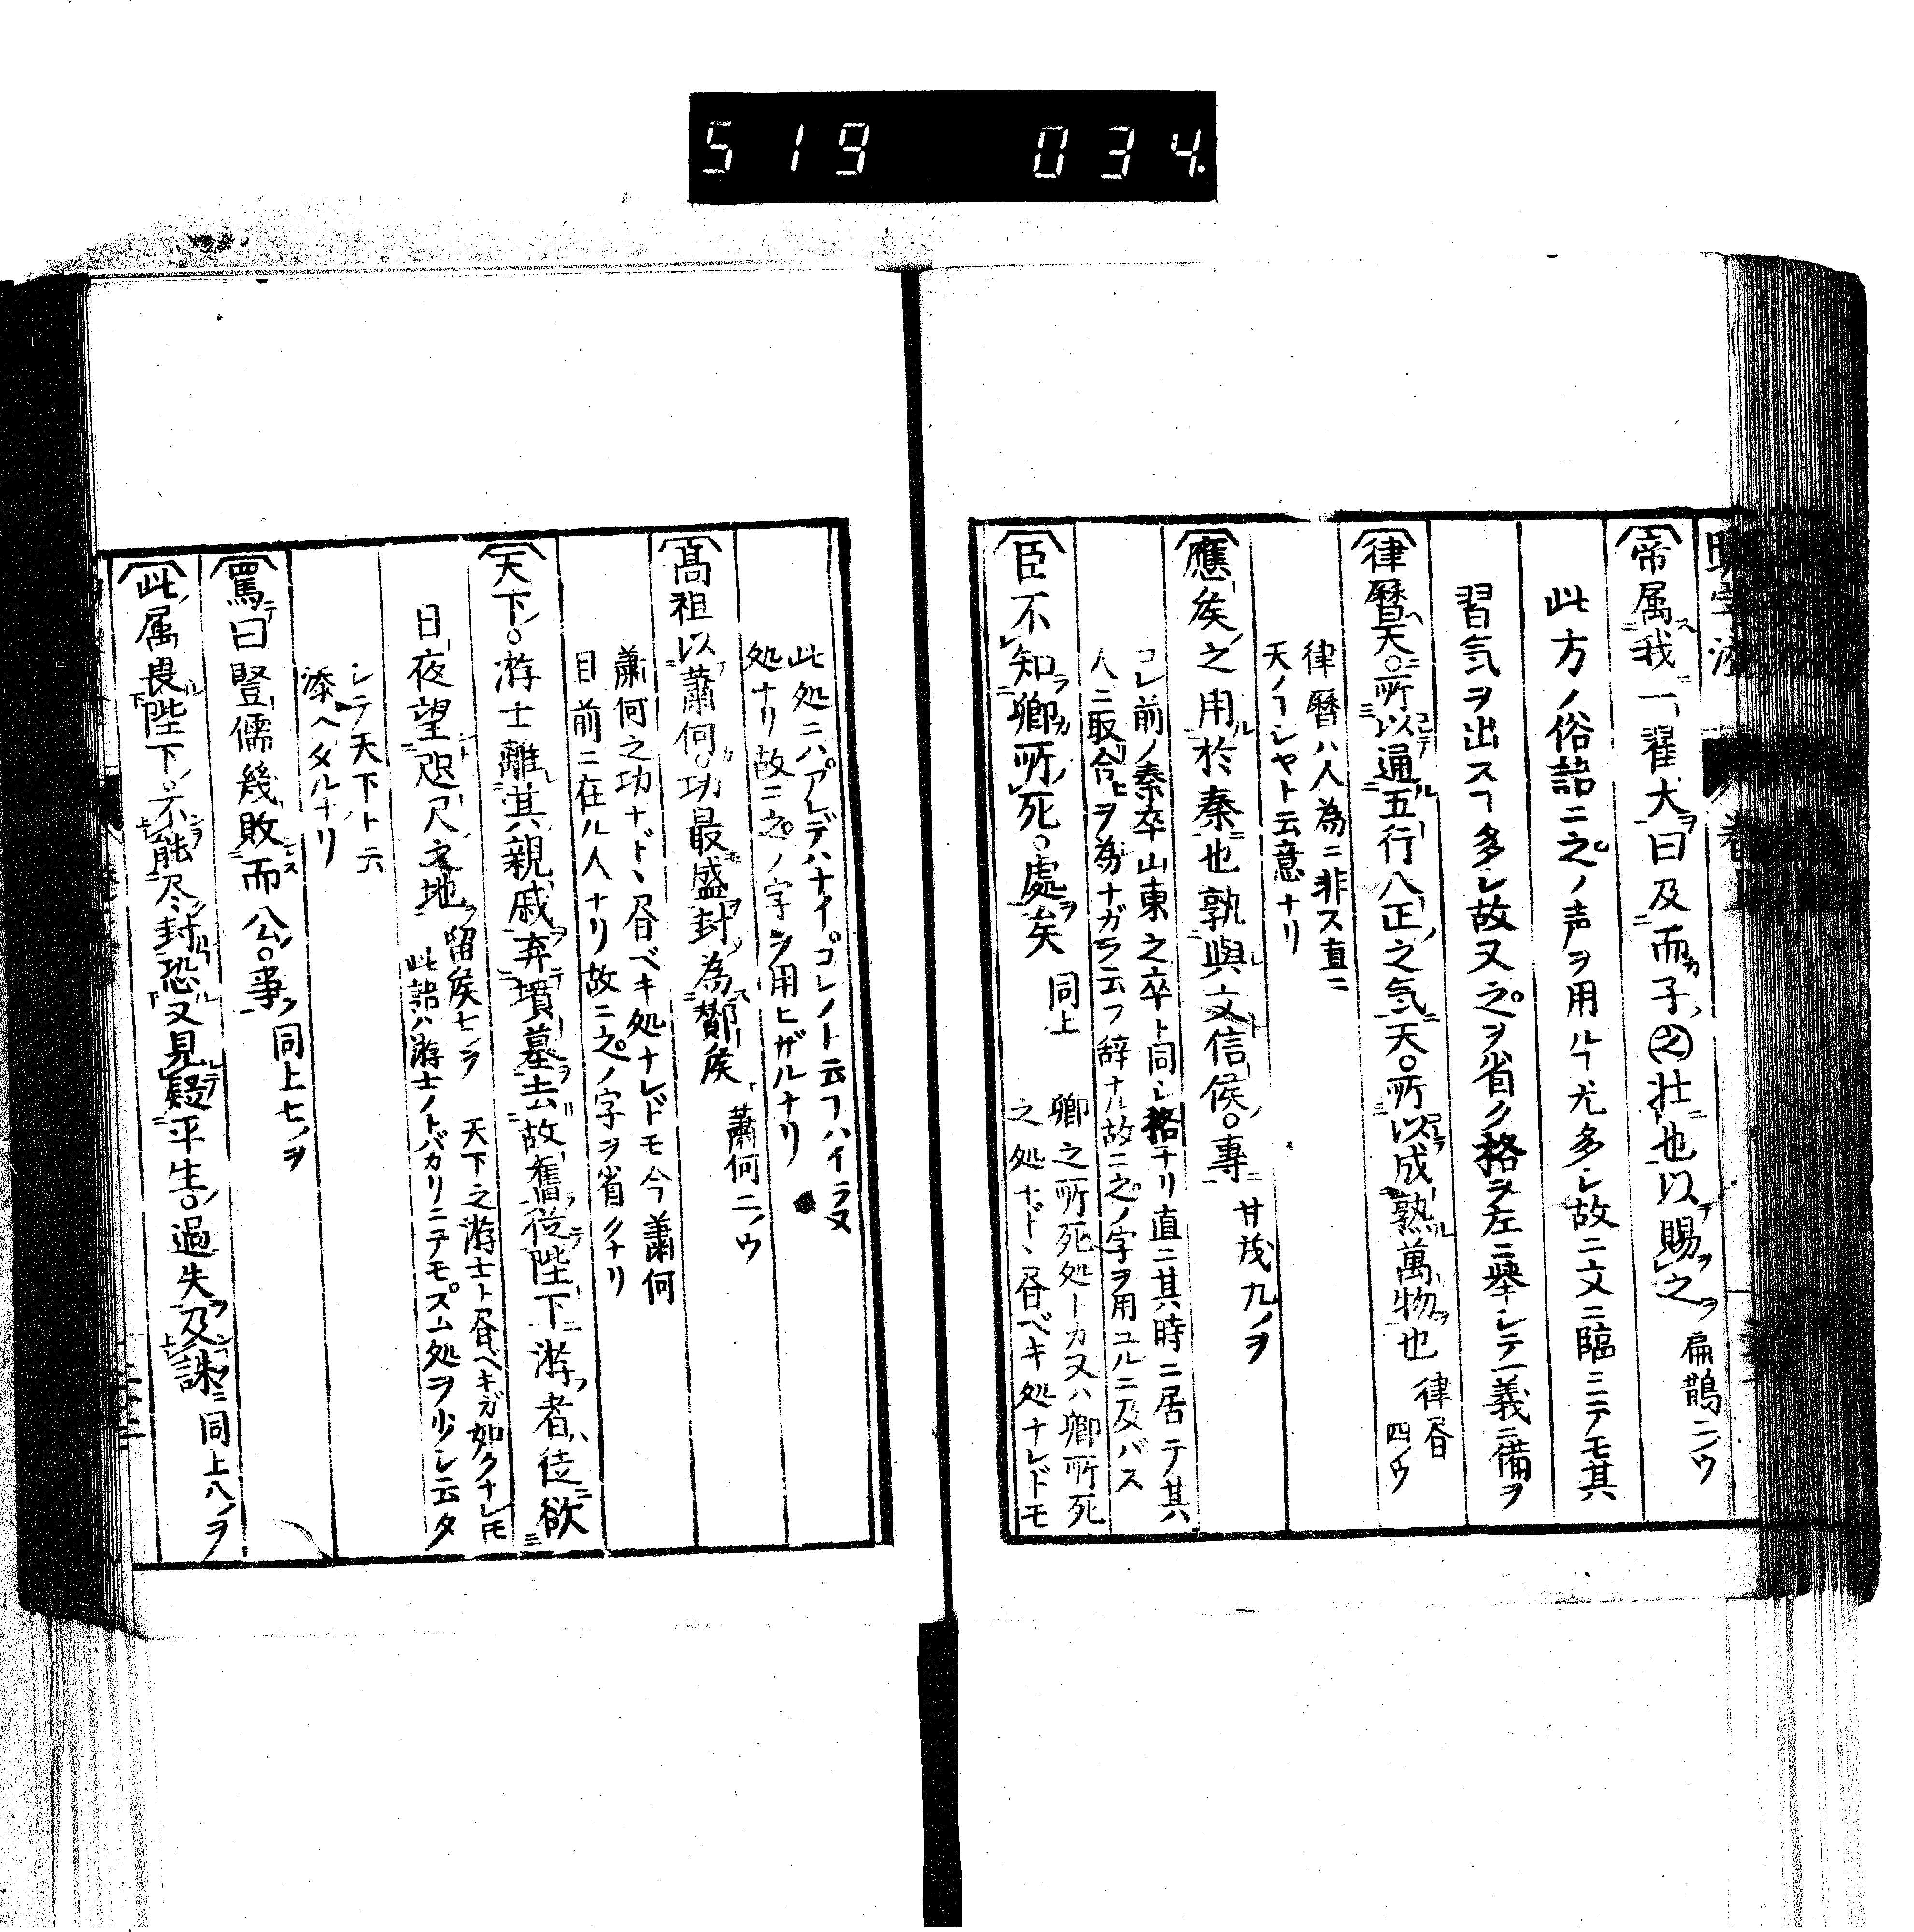 519 034.
帝属我一翟犬曰及而子之壮也以賜之 扁鵲二ノウ
此方ノ俗語ニ之ノ声ヲ用ルヿ尤多レ故ニ文ニ臨ミテモ其
習気ヲ出スヿ多レ故又之ヲ省ク格ヲ左ニ舉レテ一義ニ備ヲ
律暦天所以通五行八正之気天所以成熟萬物也 律昏四ノウ
律暦ハ人為ニ非ス直ニ
天ノヿシヤト云意ナリ
應侯之用於秦也孰與文信侯專 甘茂九ノヲ
コレ前ノ秦卒山東之卒ト同レ格ナリ直ニ其時ニ居テ其
人ニ取合ヲ為ナガラ云フ辞ナル故ニ之ノ字ヲ用ユルニ及バス
臣不知卿所死處矣 同上
卿之所死処トカ又ハ卿所死
之処ナド丶昏ベキ処ナレドモ
此処ニハアレデハナイコレノト云フハイラヌ
処ナリ故ニ之ノ字ヲ用ヒザルナリ
髙祖以蕭何功最盛封為酇侯 蕭何二ノウ
蕭何之功ナド丶昏ベキ処ナレドモ今蕭何
目前ニ在ル人ナリ故ニ之ノ字ヲ省クナリ
天下游士離其親戚弃墳墓去故舊従陛下游者徒欲
日夜望咫尺之地 留侯七ノヲ
天下之游士ト昏ベキガ如クナレ𪜈
此語ハ游士ノトバカリニテモスム処ヲ少シ云タ
シテ天下ト云
添ヘタルナリ
罵曰豎儒幾敗而公事 同上七ノヲ
此属畏陛下不能尽封恐又見疑平生過失及誅 同上八ノヲ